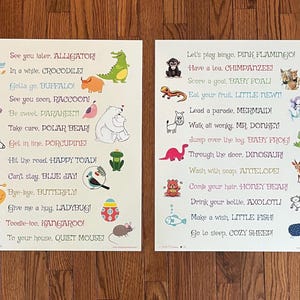 See you later, ALLIGATOR!
In a while, CROCODILE!
Gotta go, BUFFALO!
See you soon, RACCOON!
Be sweet, PARAKEET!
Take care, POLAR BEAR!
Get in line, PORCUPINE!
Hit the road, HAPPY TOAD!
Can't stay, BLUE JAY!
Bye-bye, BUTTERFLY!
Give me a hug, LADYBUG!
Toodle-loo, KANGAROO!
To your house, QUIET MOUSE!
Let's play bingo, PINK FLAMINGO!
Have a tea, CHIMPANZEE!
Score a goal, BABY FOAL!
Eat your fruit, LITTLE NEWT!
Lead a parade, MERMAID!
Walk all wonky, MR. DONKEY!
Jump over the log, BABY FROG!
Through the door, DINOSAUR!
Wash with soap, ANTELOPE!
Comb your hair, HONEY BEAR!
Drink your bottle, AXOLOTL!
Make a wish, LITTLE FISH!
Go to sleep, COZY SHEEP!